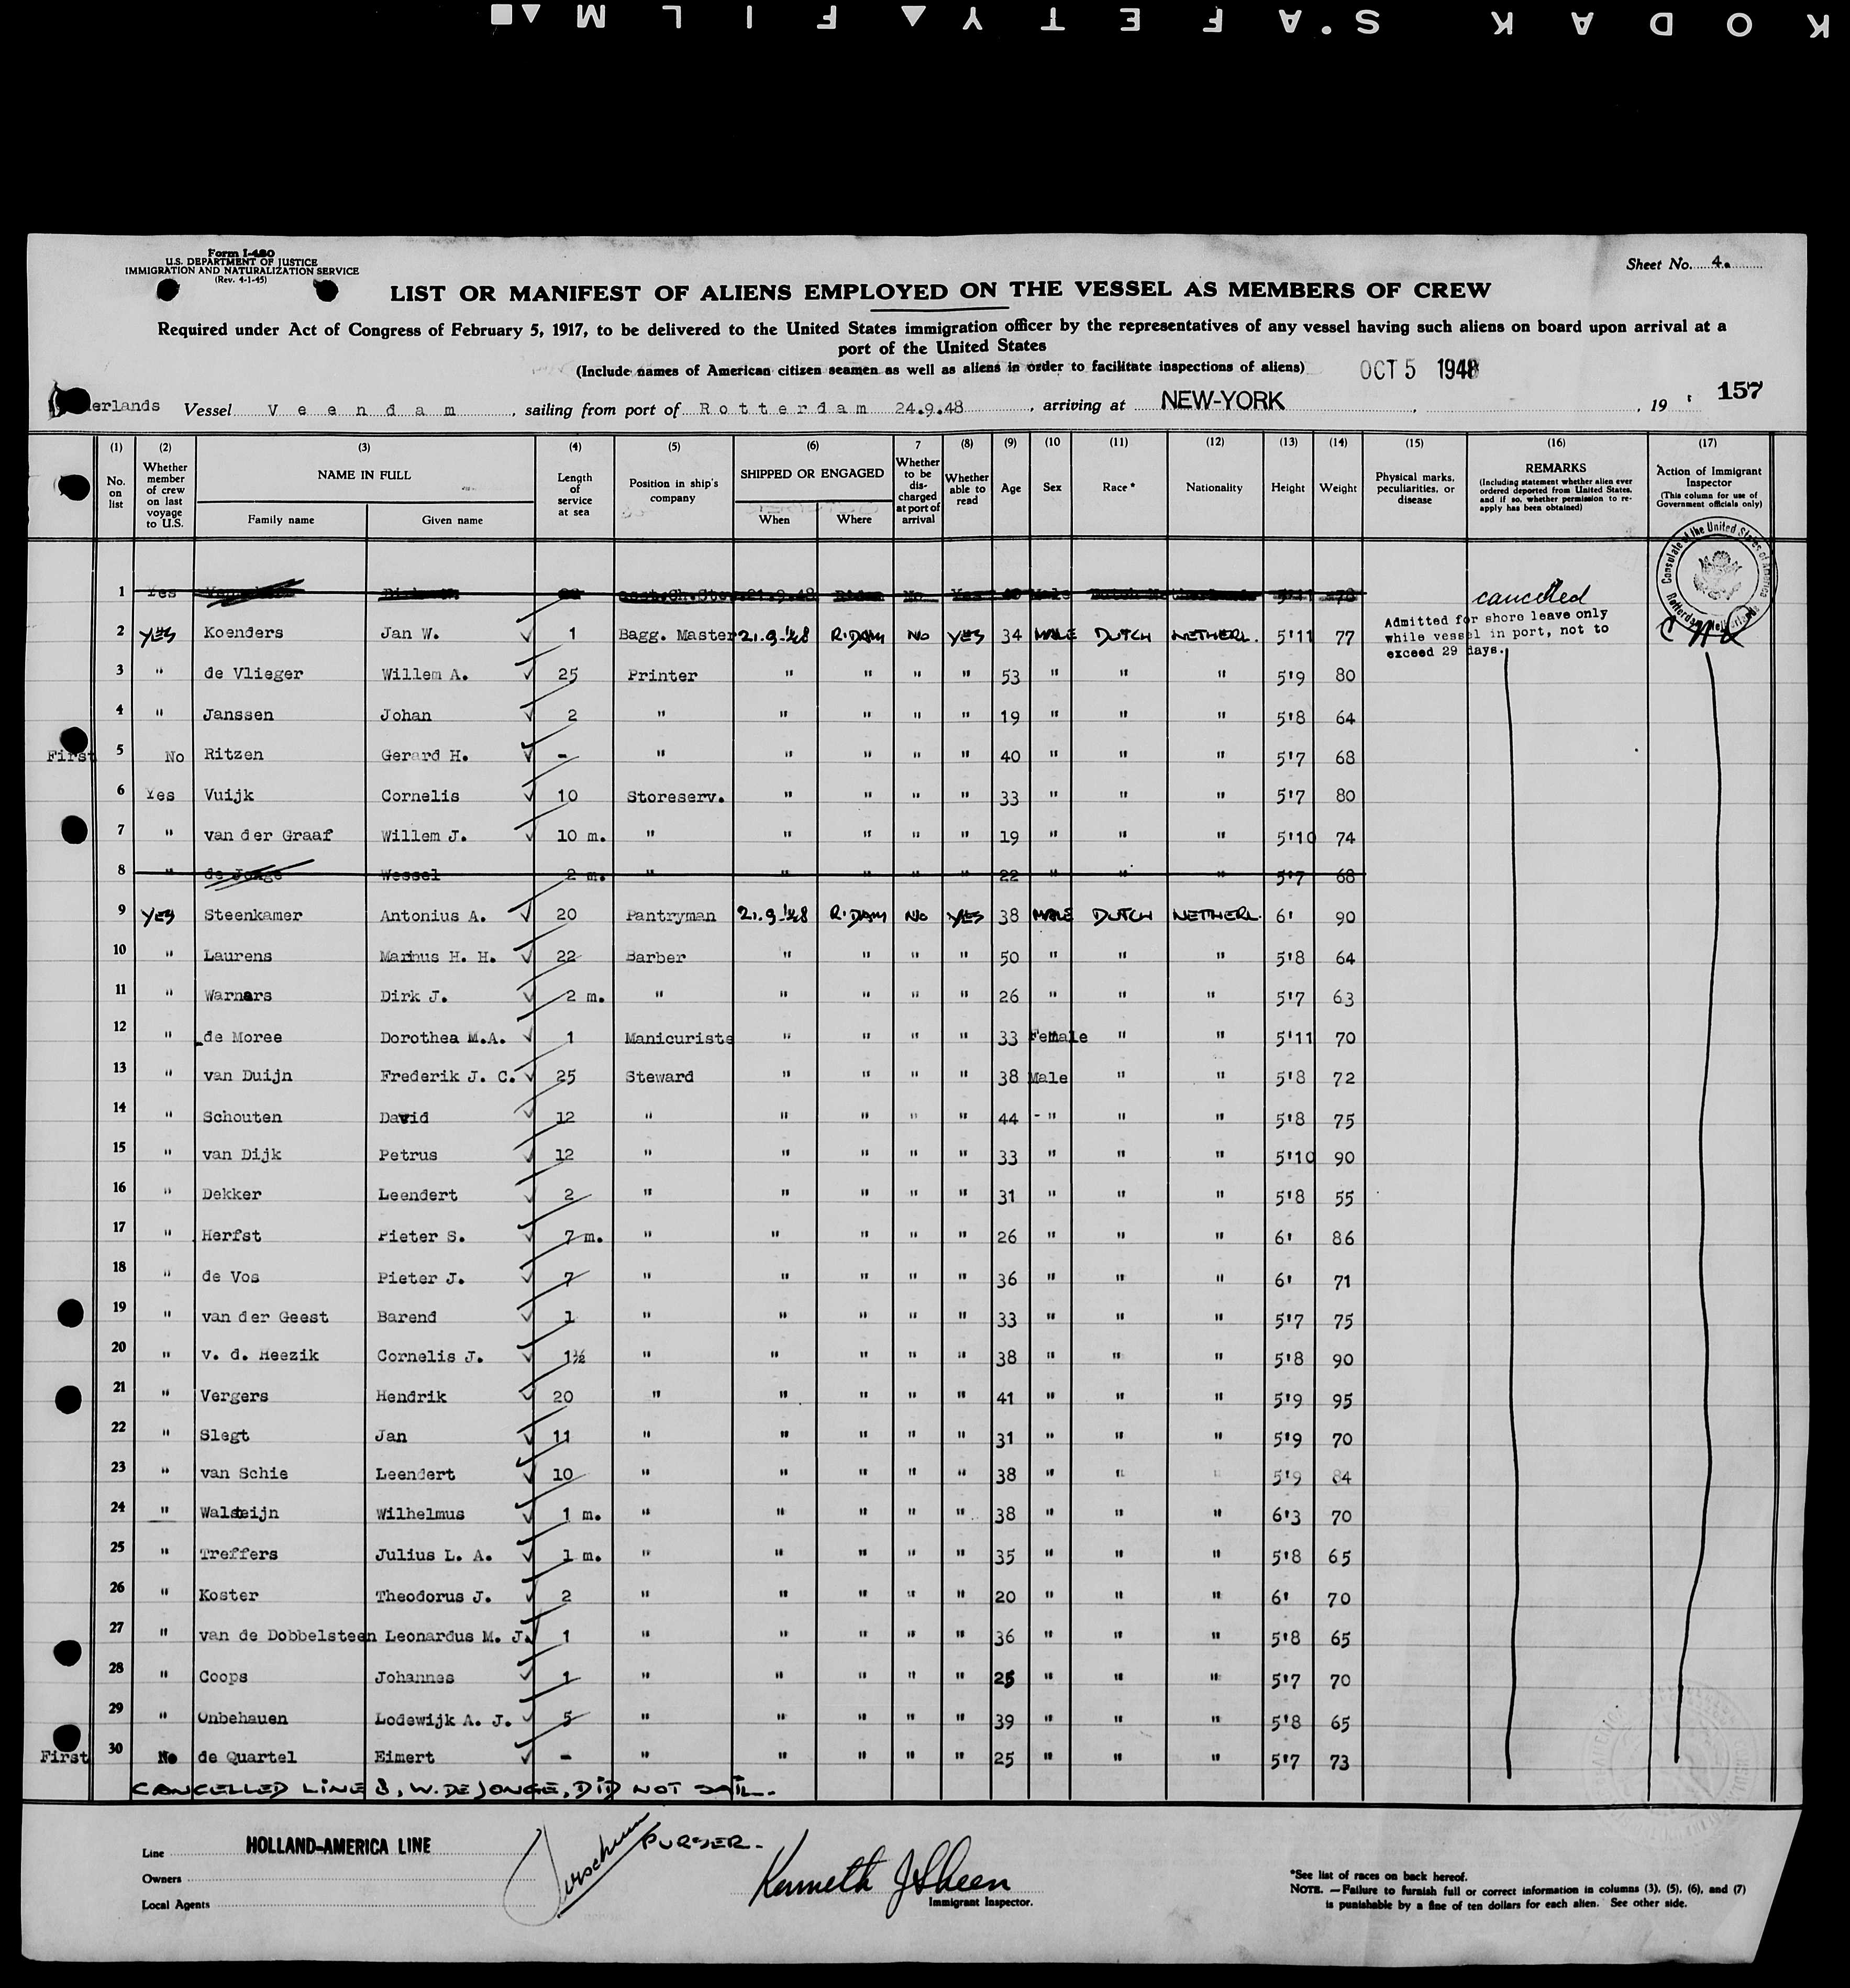 KODAK SAFETY FILM
Form I-480
U.S. DEPARTMENT OF JUSTICE
IMMIGRATION AND NATURALIZATION SERVICE
(Rev. 4-1-45)
Sheet No. 4.
LIST OR MANIFEST OF ALIENS EMPLOYED ON THE VESSEL AS MEMBERS OF CREW
Required under Act of Congress of February 5, 1917, to be delivered to the United States immigration officer by the representatives of any vessel having such aliens on board upon arrival at a
port of the United States
(Include names of American citizen seamen as well as aliens in order to facilitate inspections of aliens) OCT 5 1948
erlands Vessel Veendam, sailing from port of Rotterdam 24.9.48, arriving at NEW-YORK, 19 157
(1) (2) (3) (4) (5) (6) 7 (8) (9) (10 (11) (12) (13) (14) (15) (16) (17)
No. on list
Whether member of crew on last voyage to U.S.
NAME IN FULL
Family name Given name
Length of service at sea
Position in ship's company
SHIPPED OR ENGAGED
When Where
Whether to be discharged at port of arrival
Whether able to read
Age Sex Race* Nationality Height Weight
Physical marks, peculiarities, or disease
REMARKS
(Including statement whether alien ever ordered deported from United States, and if so, whether permission to re-apply has been obtained)
Action of Immigrant Inspector
(This column for use of Government officials only)
Consulate of the United States of America Rotterdam Netherlands
1 Yes Asst.Ch.Stew. 21.9.48 R'dam No Yes Male Dutch Netherlands 5'11 78 cancelled
Admitted for shore leave only
while vessel in port, not to
exceed 29 days.
2 YES Koenders Jan W. 1 Bagg. Master 21.9.'48 R'DAM NO YES 34 MALE DUTCH NETHERL. 5'11 77
3 " de Vlieger Willem A. 25 Printer " " " " 53 " " " 5'9 80
4 " Janssen Johan 2 " " " " " 19 " " " 5'8 64
First 5 No Ritzen Gerard H. - " " " " " 40 " " " 5'7 68
6 Yes Vuijk Cornelis 10 Storeserv. " " " " 33 " " " 5'7 80
7 " van der Graaf Willem J. 10 m. " " " " " 19 " " " 5'10 74
8 " de Jonge Wessel 2 m. " " " " " 22 " " " 5'7 68
9 YES Steenkamer Antonius A. 20 Pantryman 21.9.'48 R'DAM NO YES 38 MALE DUTCH NETHERL. 6' 90
10 " Laurens Marinus H. H. 22 Barber " " " " 50 " " " 5'8 64
11 " Warnars Dirk J. 2 m. " " " " " 26 " " " 5'7 63
12 " de Moree Dorothea M.A. 1 Manicuriste " " " " 33 Female " " 5'11 70
13 " van Duijn Frederik J. C. 25 Steward " " " " 38 Male " " 5'8 72
14 " Schouten David 12 " " " " " 44 - " " " 5'8 75
15 " van Dijk Petrus 12 " " " " " 33 " " " 5'10 90
16 " Dekker Leendert 2 " " " " " 31 " " " 5'8 55
17 " Herfst Pieter S. 7 m. " " " " " 26 " " " 6' 86
18 " de Vos Pieter J. 7 " " " " " 36 " " " 6' 71
19 " van der Geest Barend 1 " " " " " 33 " " " 5'7 75
20 " v. d. Heezik Cornelis J. 1½ " " " " " 38 " " " 5'8 90
21 " Vergers Hendrik 20 " " " " " 41 " " " 5'9 95
22 " Slegt Jan 11 " " " " " 31 " " " 5'9 70
23 " van Schie Leendert 10 " " " " " 38 " " " 5'9 84
24 " Walsteijn Wilhelmus 1 m. " " " " " 38 " " " 6'3 70
25 " Treffers Julius L. A. 1 m. " " " " " 35 " " " 5'8 65
26 " Koster Theodorus J. 2 " " " " " 20 " " " 6' 70
27 " van de Dobbelsteen Leonardus M. J. 1 " " " " " 36 " " " 5'8 65
28 " Coops Johannes 1 " " " " " 25 " " " 5'7 70
29 " Onbehauen Lodewijk A. J. 5 " " " " " 39 " " " 5'8 65
First 30 No de Quartel Eimert - " " " " " 25 " " " 5'7 73
CANCELLED LINE 8, W. DE JONGE, DID NOT SAIL.
Line HOLLAND-AMERICA LINE
Owners
Local Agents
PURSER.
Kenneth J Sheen
Immigrant Inspector.
*See list of races on back hereof.
NOTE.—Failure to furnish full or correct information in columns (3), (5), (6), and (7)
is punishable by a fine of ten dollars for each alien. See other side.